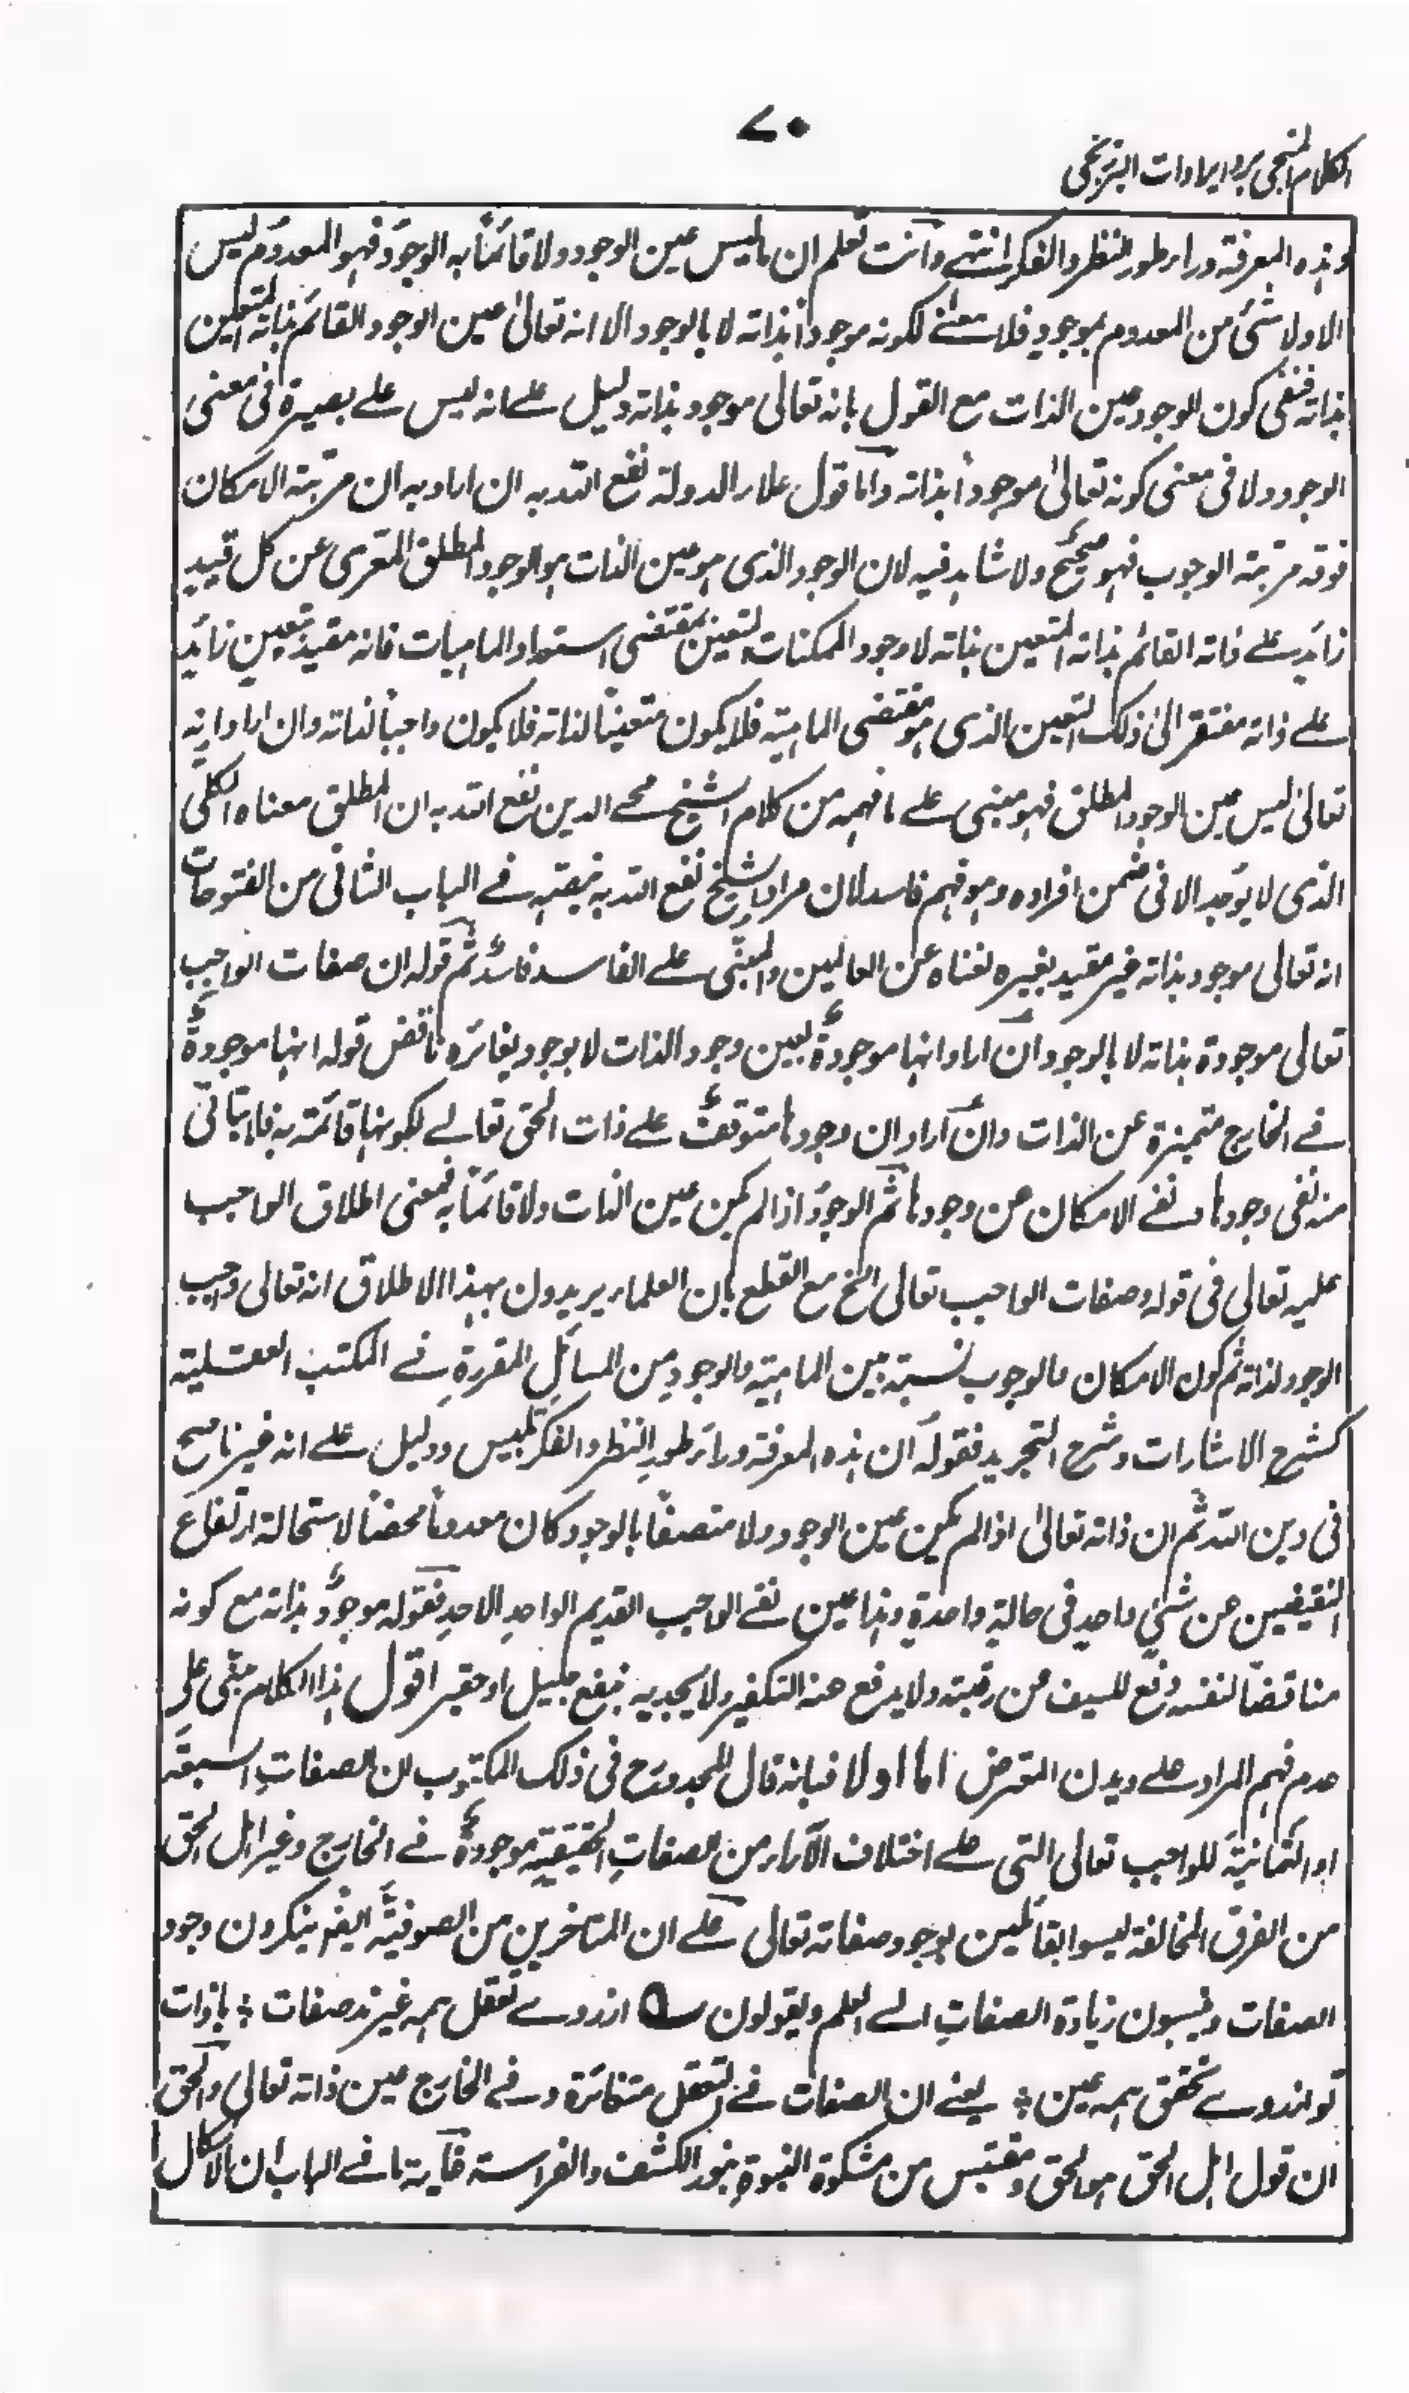 ٧٠
الكلام المنجي برد ايرادات البرزنجي
وهذه المعرفة وراء طور النظر والفكر انتهى وانت تعلم ان ما ليس عين الوجود ولا قائماً به الوجود فهو المعدوم ليس
الا ولا شئ من المعدوم بموجود فلا معنى لكونه موجوداً بذاته لا بالوجود الا انه تعالىٰ عين الوجود القائم بذاته المتعين
بذاته فنفى كون الوجود عين الذات مع القول بانه تعالى موجود بذاته دليل على انه ليس على بصيرة فى معنى
الوجود ولا فى معنى كونه تعالىٰ موجوداً بذاته واما قول علاء الدولة نفع الله به ان اراد به ان مرتبة الامكان
فوقه مرتبة الوجوب فهو صحيح ولا شاهد فيه لان الوجود الذى هو عين الذات هو الوجود المطلق المتعرى عن كل قيد
زائد على ذاته القائم بذاته المتعين بذاته لا وجود الممكنات المتعين بمقتضى استعداد الماهيات فانه مقيد بتعين زائد
على ذاته مفتقر الىٰ ذلك التعين الذى هو مقتضى الماهية فلا يكون متعيناً لذاته فلا يكون واجباً لذاته وان اراد انه
تعالىٰ ليس عين الوجود المطلق فهو مبنى على ما فهمه من كلام الشيخ محى الدين نفع الله به ان المطلق معناه الكلى
الذى لا يوجد الا فى ضمن افراده وهو فهم فاسد لان مراد الشيخ نفع الله به بنصه فى الباب الثانى من الفتوحات
انه تعالى موجود بذاته غير مقيد بغيره لغناه عن العالمين والمبنى على الفاسد فاسد ثم قوله ان صفات الواجب
تعالى موجودة بذاته لا بالوجود ان اراد انها موجودة بعين وجود الذات لا بوجود يغائره ناقض قوله انها موجودة
فى الخارج متميزة عن الذات وان اراد ان وجودها متوقف على ذات الحق تعالى لكونها قائمة به فلا يتاتى
منه نفى وجودها ونفى الامكان عن وجودها ثم الوجود اذا لم يكن عين الذات ولا قائماً به فمعنى اطلاق الواجب
عليه تعالى فى قوله وصفات الواجب تعالى الخ مع القطع بان العلماء يريدون بهذا الاطلاق انه تعالى واجب
الوجود لذاته ثم كون الامكان والوجوب نسبة بين الماهية والوجود من المسائل المقررة فى الكتب العقلية
كشرح الاشارات وشرح التجريد فقوله ان هذه المعرفة وراء طور النظر والفكر تلبيس ودليل على انه غير ناصح
فى دين الله ثم ان ذاته تعالىٰ اذا لم يكن عين الوجود ولا متصفاً بالوجود كان معدوماً محضاً لاستحالة ارتفاع
النقيضين عن شئ واحد فى حالة واحدة وهذا عين نفى الواجب القديم الواحد الاحد فقوله موجود بذاته مع كونه
مناقضاً لنفسه دفع للسيف من رقبته ولا يرفع عنه التكفير ولا يجديه بنفع جليل او حقير اقول هذا الكلام مبنى على
عدم فهم المراد على ديدن المعترض اما اولا فبانه قال المجدد رح فى ذلك المكتوب ان الصفات السبعة
او الثمانية للواجب تعالى التى على اختلاف الآراء من الصفات الحقيقية موجودة فى الخارج وغير اهل الحق
من الفرق المخالفة ليسوا بقائلين بوجود صفاته تعالى على ان المتاخرين من الصوفية ايضاً ينكرون وجود
الصفات وينسبون زيادة الصفات الى العلم ويقولون ؎ از روے تعقل همه غيرند صفات ؞ با ذات
تو از روے تحقق همه عين ؞ يعنى ان الصفات فى التعقل متغائرة وفى الخارج عين ذاته تعالى والحق
ان قول اهل الحق هو الحق ومقتبس من مشكوة النبوة بنور الكشف والفراسة غاية ما فى الباب ان الاشكال